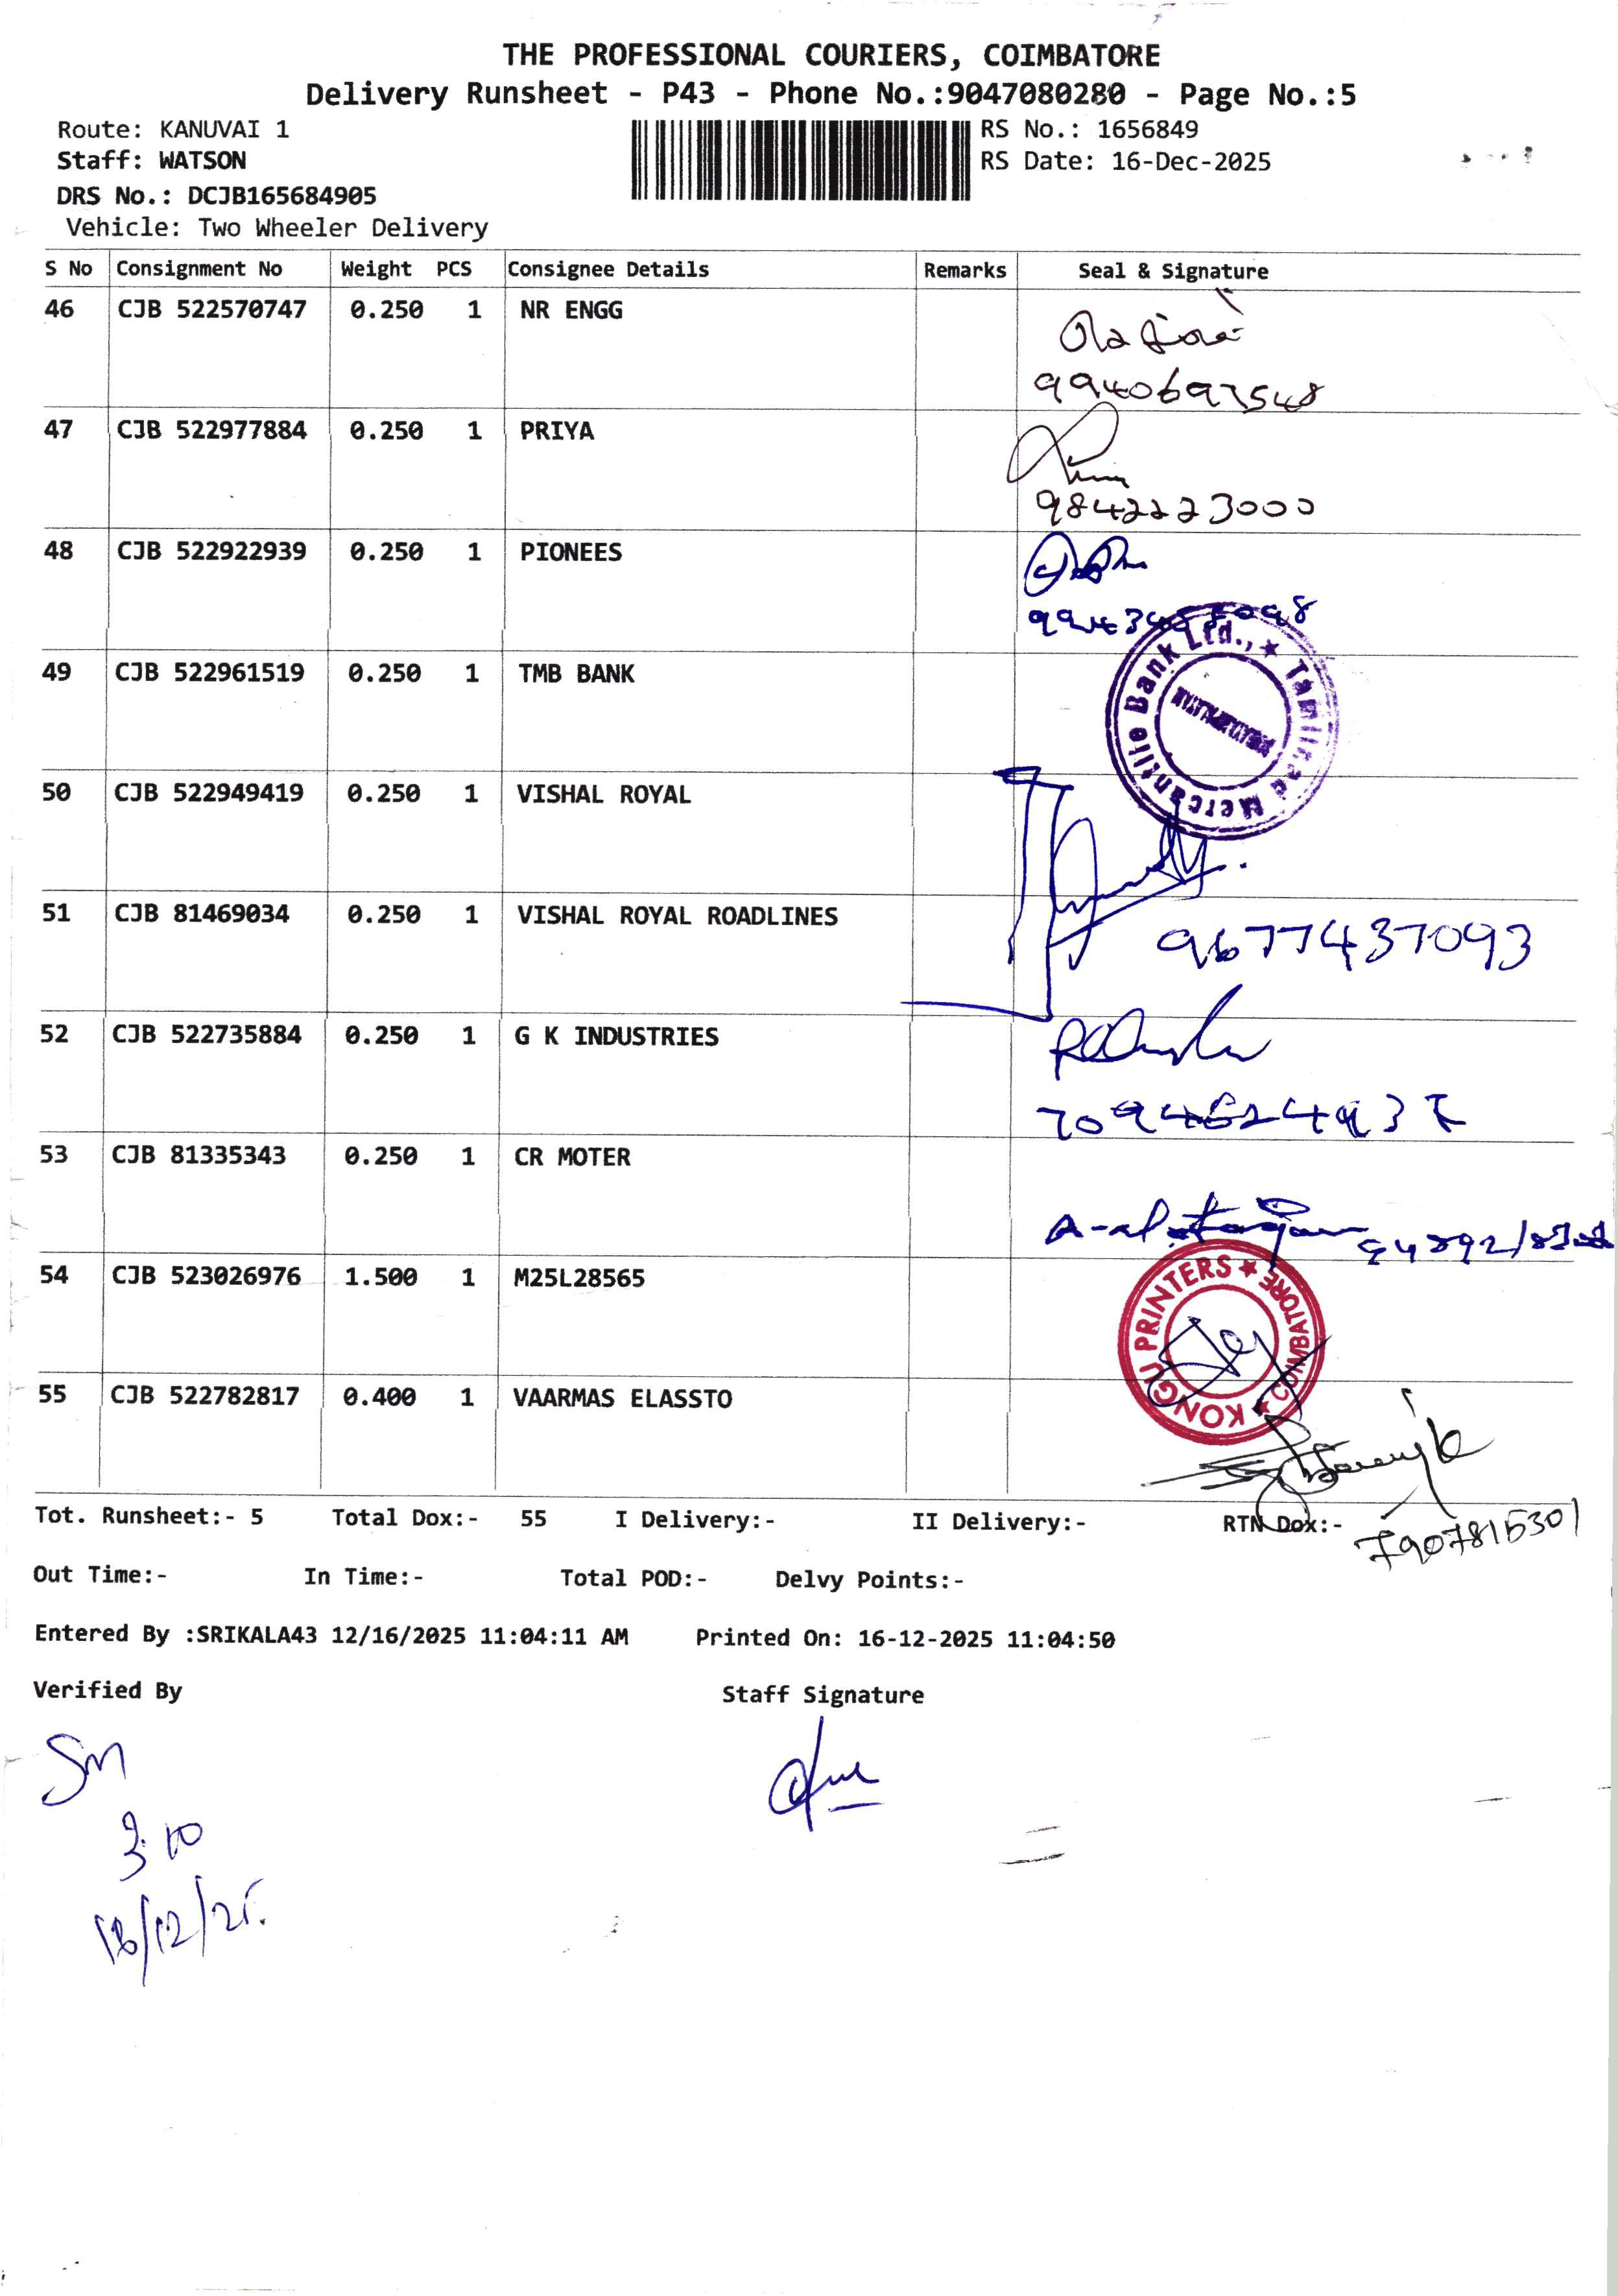 THE PROFESSIONAL COURIERS, COIMBATORE
Delivery Runsheet - P43 - Phone No.:9047080280 - Page No.:5
Route: KANUVAI 1
RS No.: 1656849
Staff: WATSON
RS Date: 16-Dec-2025
DRS No.: DCJB165684905
Vehicle: Two Wheeler Delivery
S No Consignment No Weight PCS Consignee Details Remarks Seal & Signature
46 CJB 522570747 0.250 1 NR ENGG
9940697548
47 CJB 522977884 0.250 1 PRIYA
9842223000
48 CJB 522922939 0.250 1 PIONEES
49 CJB 522961519 0.250 1 TMB BANK
Tamilnad Mercantile Bank Ltd.,
50 CJB 522949419 0.250 1 VISHAL ROYAL
51 CJB 81469034 0.250 1 VISHAL ROYAL ROADLINES
9677437093
52 CJB 522735884 0.250 1 G K INDUSTRIES
53 CJB 81335343 0.250 1 CR MOTER
54 CJB 523026976 1.500 1 M25L28565
KONGU PRINTERS ★ COIMBATORE ★
55 CJB 522782817 0.400 1 VAARMAS ELASSTO
7907815301
Tot. Runsheet:- 5 Total Dox:- 55 I Delivery:- II Delivery:- RTN Dox:-
Out Time:- In Time:- Total POD:- Delvy Points:-
Entered By :SRIKALA43 12/16/2025 11:04:11 AM Printed On: 16-12-2025 11:04:50
Verified By Staff Signature
Sm
3.10